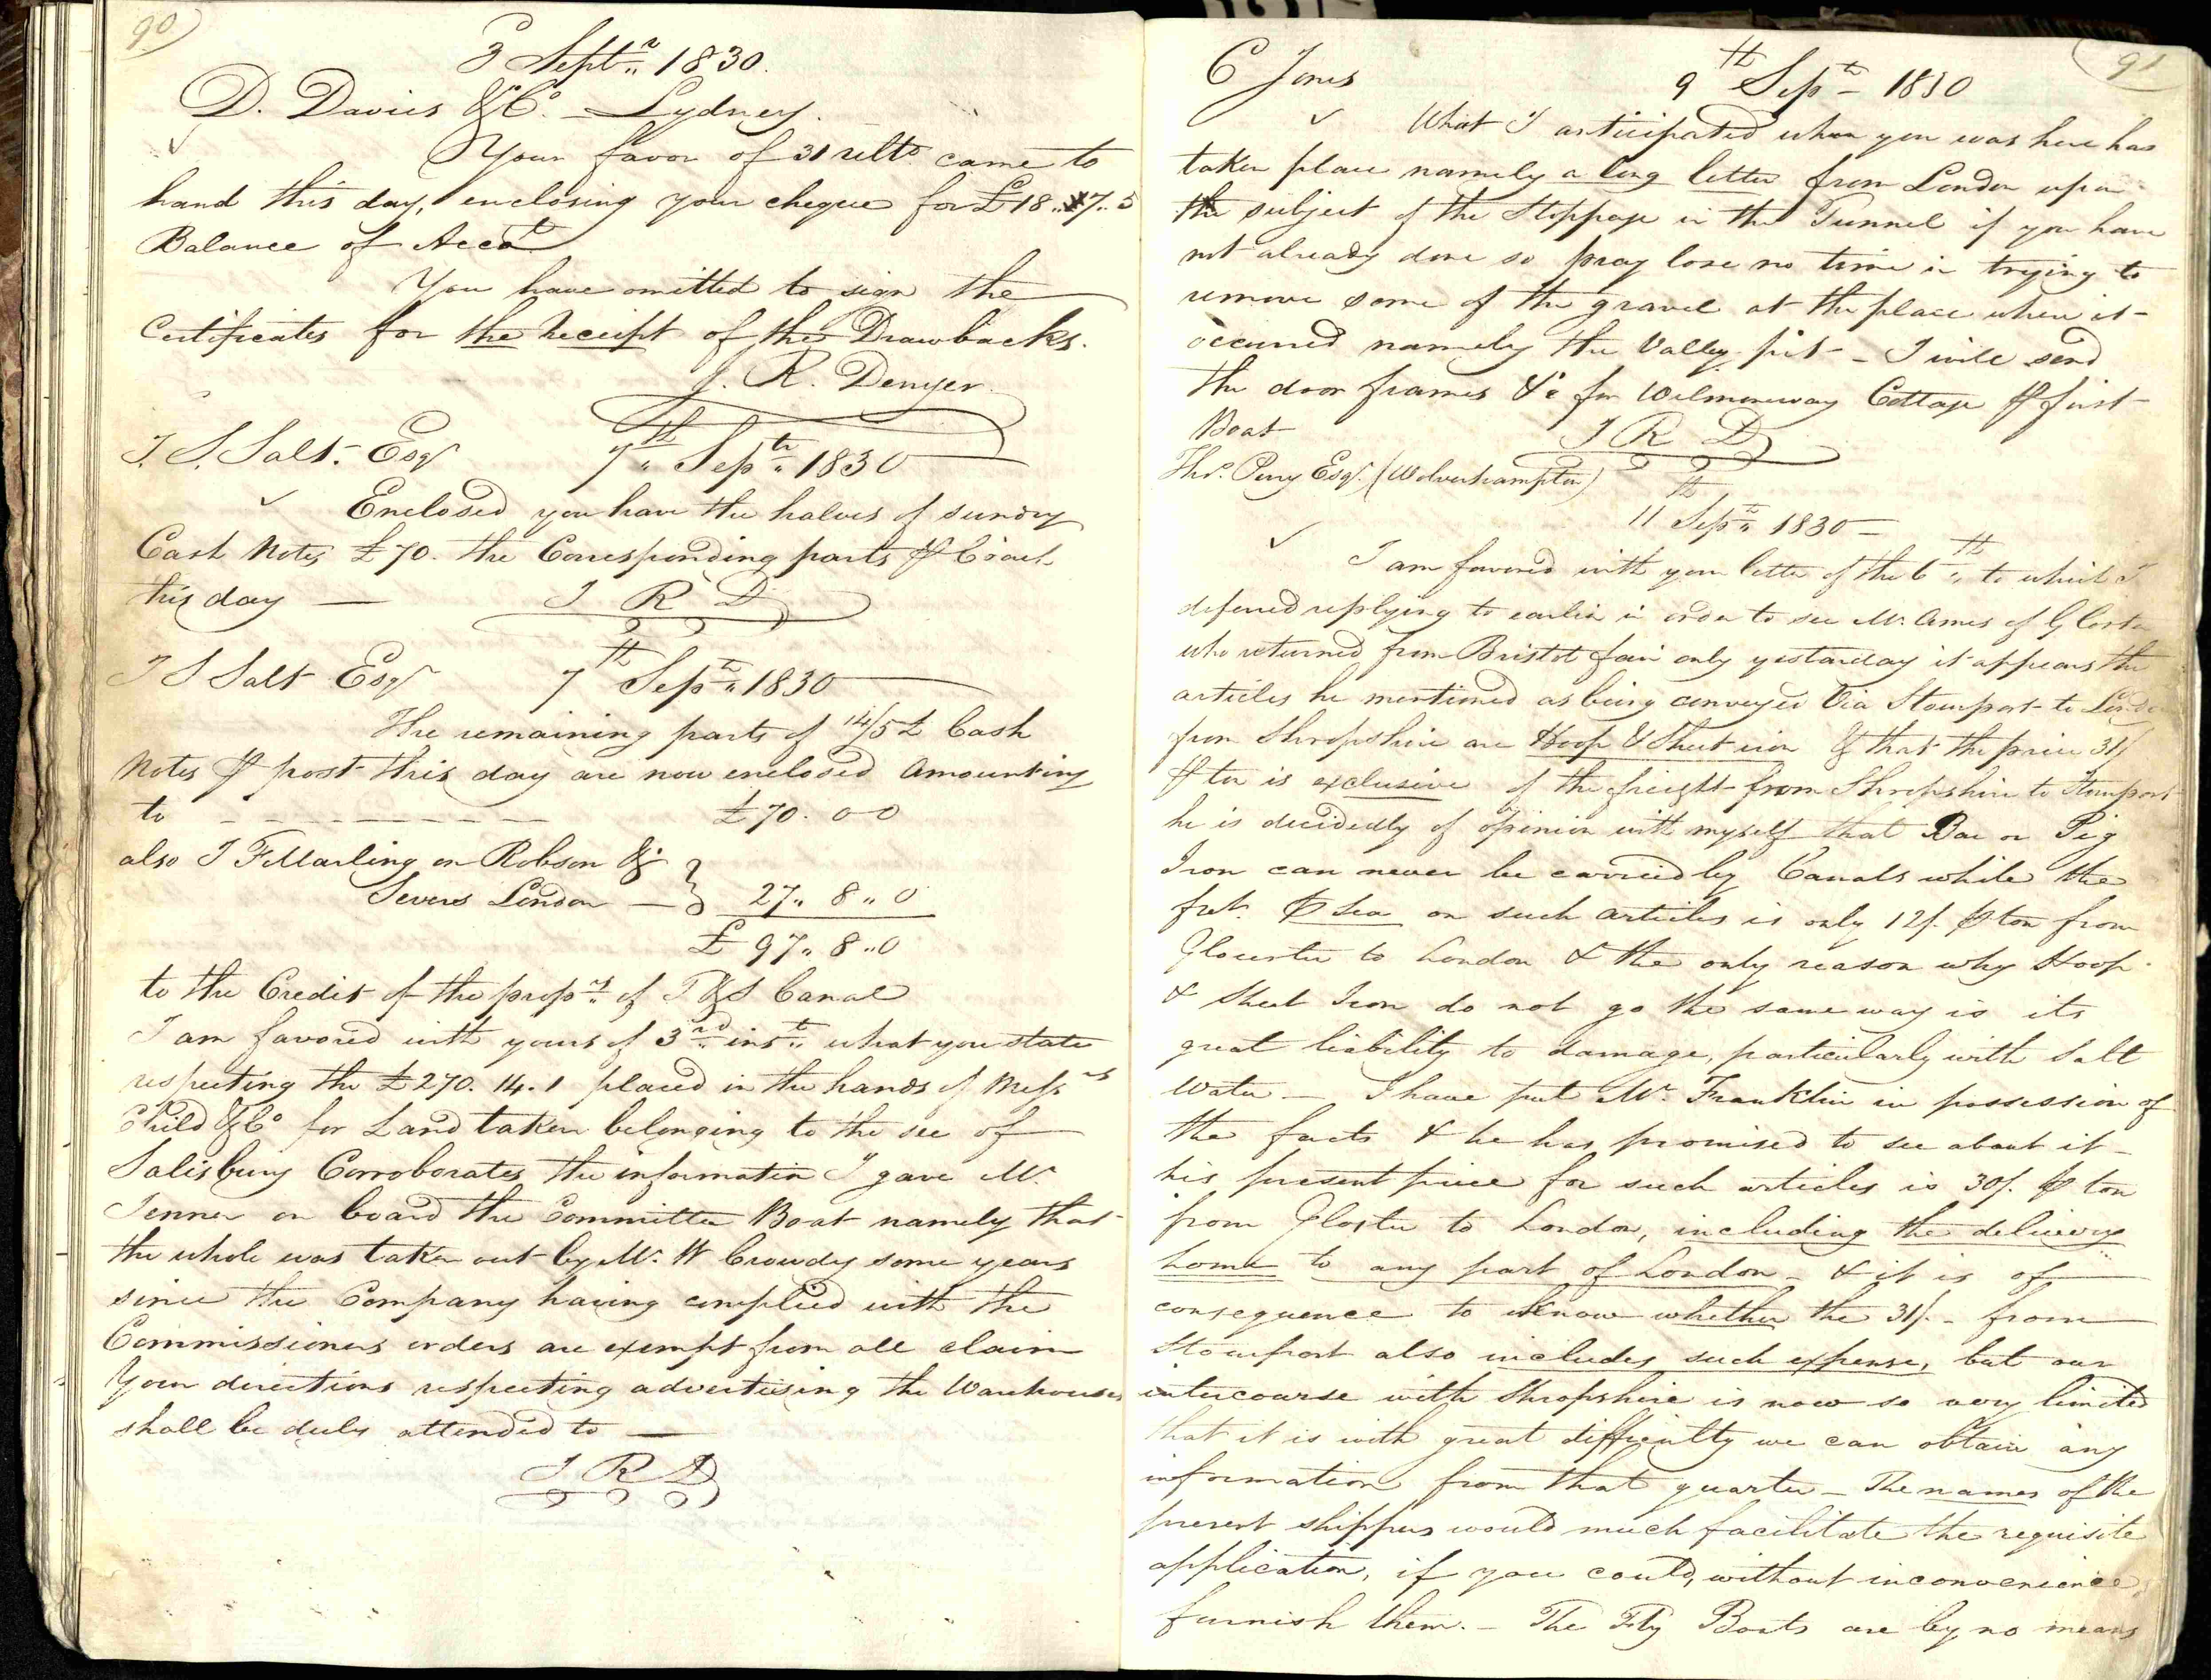 90
3 Septr 1830.
D. Davies & Co. - Lydney.
Your favor of 31 ulto came to
hand this day, enclosing your cheque for £18..7..5
Balance of Accot
You have omitted to sign the
Certificates for the Receipt of the Drawbacks.
J. R. Denyer
T. S. Salt. Esqr 7th Septr 1830
Enclosed you have the halves of sundry
Cash Notes £70. the Corresponding parts ⅌ Coach
this day — J R D
T S Salt Esqr 7th Septr 1830
The remaining parts of 14/5£ Cash
Notes ⅌ post this day are now enclosed Amounting
to - - - - - - - - - £70. 0 0
also T F Marling on Robson &
Severs London — } 27.. 8.. 0
£ 97.. 8..0
to the Credit of the proprs of T & S Canal
I am favored with yours of 3rd inst what you state
respecting the £270. 14. 1 placed in the hands of Messrs
Child & Co for Land taken belonging to the see of
Salisbury Corroborates the information I gave Mr.
Jenner on board the Committee Boat namely that
the whole was taken out by Mr. W Crowdy some years
since the Company having complied with the
Commissioners orders are exempt from all claim
Your directions respecting advertising the Warehouses
shall be duly attended to —
J R D
91
C Jones 9th Sept 1830
What I anticipated when you was here has
taken place namely a long letter from London upon
the subject of the Stoppage in the Tunnel if you have
not already done so pray lose no time in trying to
remove some of the gravel at the place where it
occurred namely the Valley pit - I will send
the door frames &c for Wilmoreway Cottage ⅌ first
Boat J R D
Thos. Perry Esqr. (Wolverhampton)
11th Septr 1830 —
I am favored with your letter of the 6th to which I
deferred replying to earlier in order to see Mr. Ames of Gloster
who returned from Bristol fair only yestarday it appears the
articles he mentioned as being conveyed Via Stourport to London
from Shropshire are Hoop & Sheet iron & that the price 31/
⅌ ton is exclusive of the freight from Shropshire to Stourport
he is decidedly of opinion with myself that Bar or Pig
Iron can never be carried by Canals while the
frt. ⅌ Sea on such articles is only 12/. ⅌ ton from
Gloucester to London & the only reason why Hoop
& Sheet Iron do not go the same way is its
great liability to damage, particularly with Salt
Water — I have put Mr. Franklin in possession of
the facts & he has promised to see about it -
his present price for such articles is 30/. ⅌ ton
from Gloster to London, including the delivery
home to any part of London - & it is of
consequence to know whether the 31/- from
Stourport also includes such expense, but our
intercourse with Shropshire is now so very limited
that it is with great difficulty we can obtain any
information from that quarter - The names of the
present shippers would much facilitate the requisite
application, if you could, without inconvenience,
furnish them. - The Fly Boats are by no means